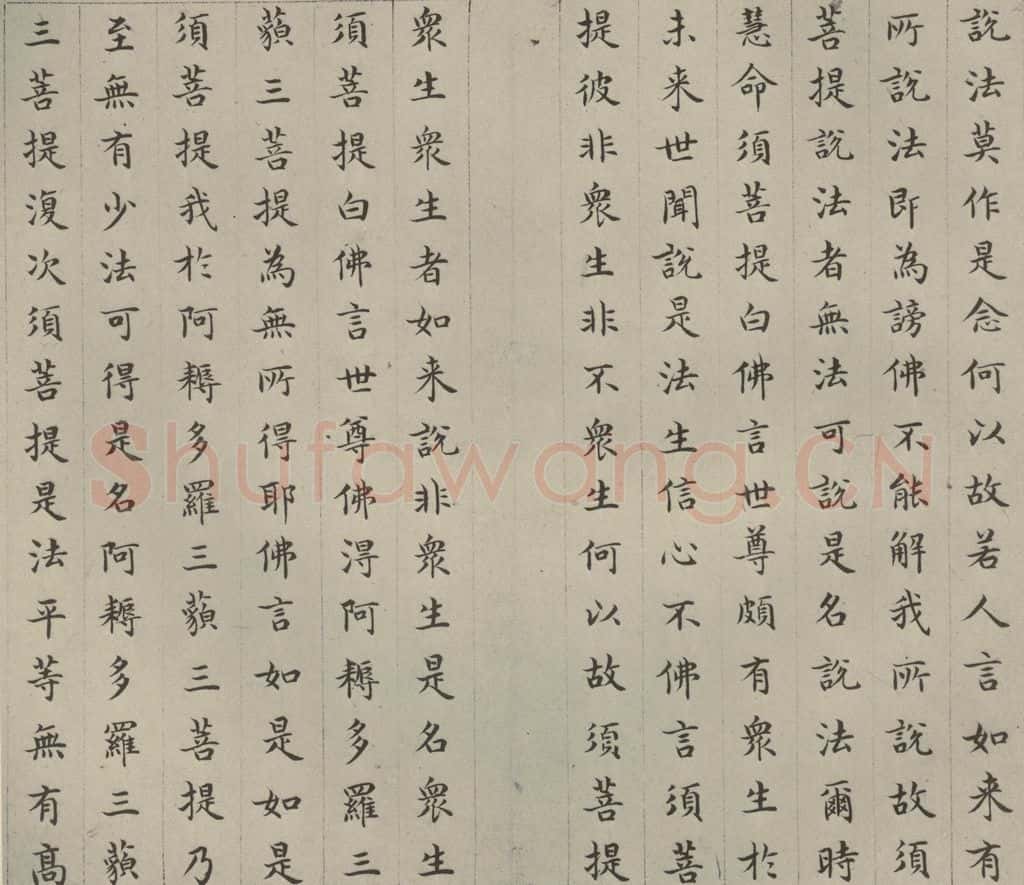 說法莫作是念何以故若人言如来有
所說法即為謗佛不能解我所說故須
菩提說法者無法可說是名說法爾時
慧命須菩提白佛言世尊頗有衆生於
未来世聞說是法生信心不佛言須菩
提彼非衆生非不衆生何以故須菩提
衆生衆生者如来說非衆生是名衆生
須菩提白佛言世尊佛淂阿耨多羅三
藐三菩提為無所得耶佛言如是如是
須菩提我於阿耨多羅三藐三菩提乃
至無有少法可得是名阿耨多羅三藐
三菩提復次須菩提是法平等無有髙
Shufawang.CN